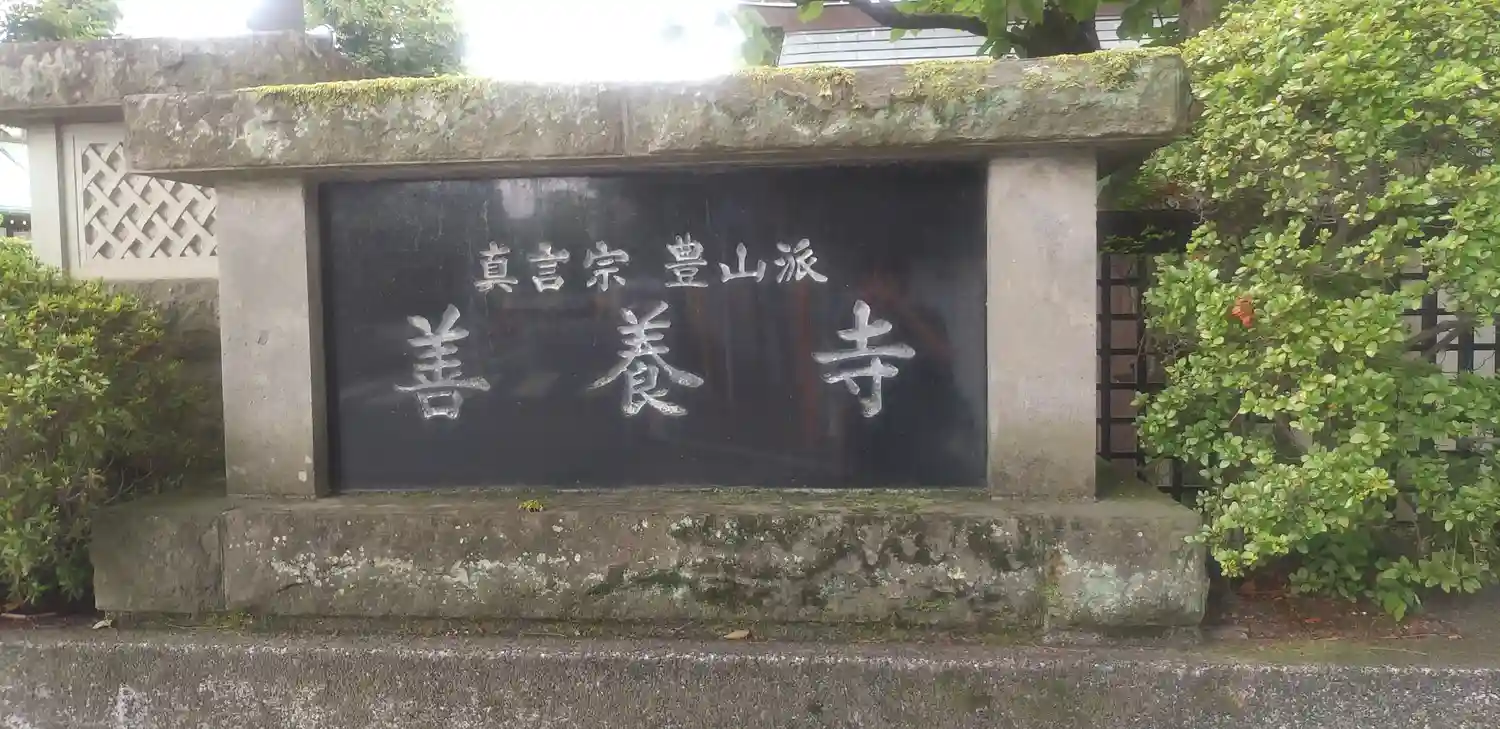 真言宗 豊山派
善養寺